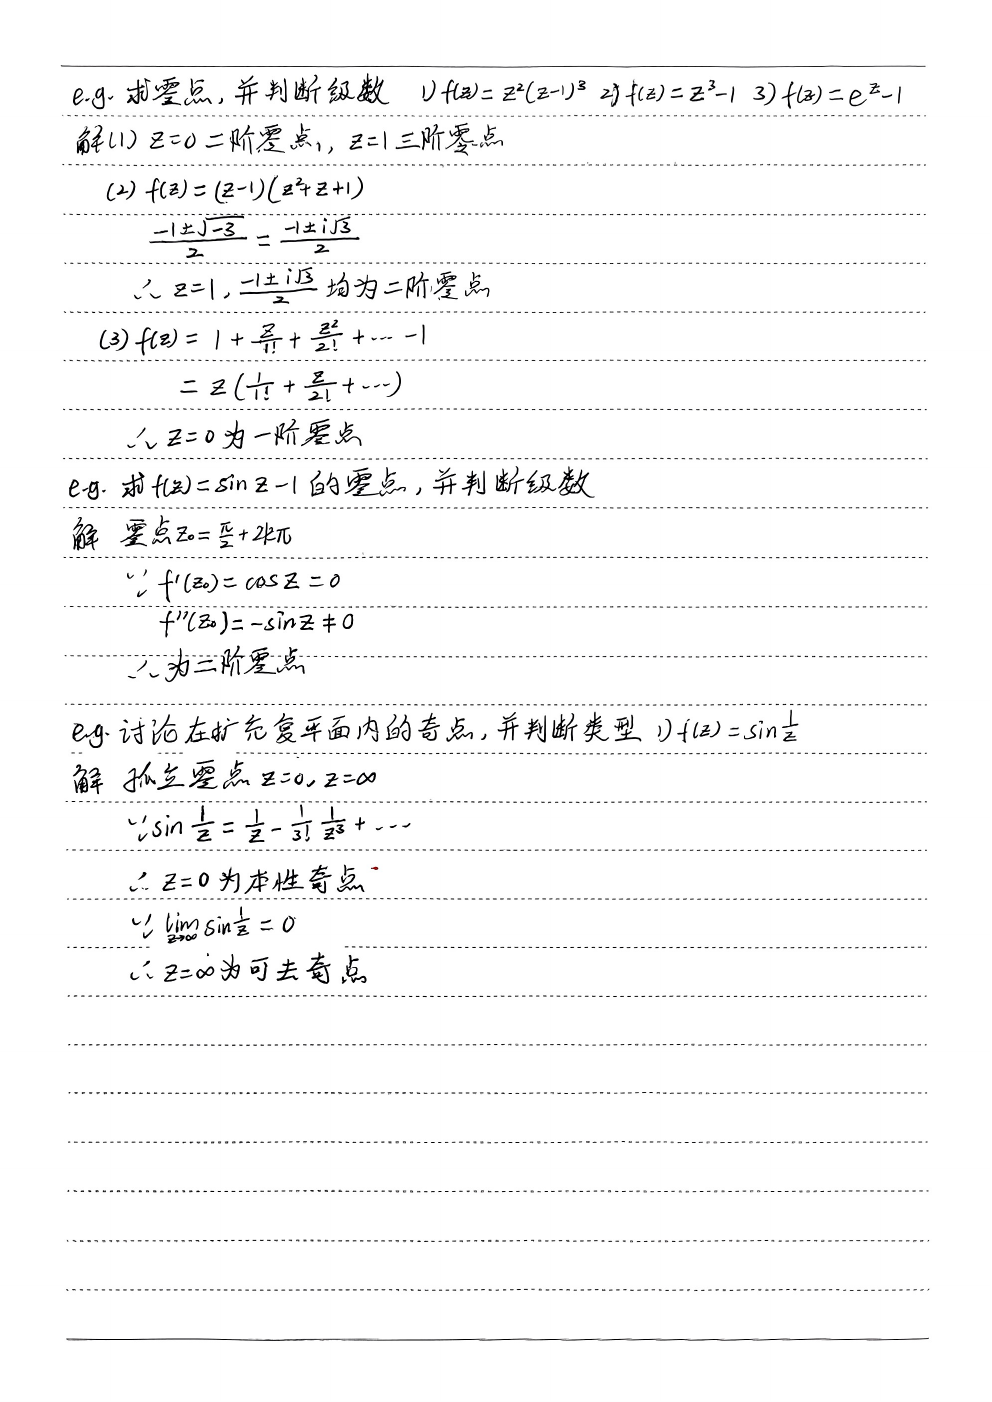 e.g. 求零点,并判断级数 1) f(z)=z²(z-1)³ 2) f(z)=z³-1 3) f(z)=e^z-1
解(1) z=0二阶零点, z=1三阶零点
(2) f(z)=(z-1)(z²+z+1)
(-1±√-3)/2 = (-1±i√3)/2
∴ z=1, (-1±i√3)/2 均为二阶零点
(3) f(z)= 1 + z/1! + z²/2! + … -1
= z(1/1! + z/2! + …)
∴ z=0为一阶零点
e.g. 求f(z)=sin z-1的零点,并判断级数
解 零点z₀=π/2+2kπ
∵ f'(z₀)=cos z=0
f''(z₀)=-sin z≠0
∴ 为二阶零点
e.g. 讨论在扩充复平面内的奇点,并判断类型 1) f(z)=sin 1/z
解 孤立零点 z=0, z=∞
∵ sin 1/z = 1/z - 1/3! 1/z³ + …
∴ z=0为本性奇点
∵ lim z→∞ sin 1/z = 0
∴ z=∞为可去奇点